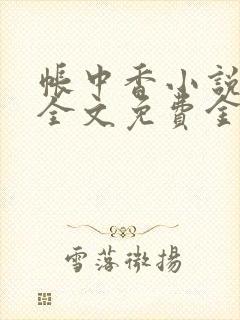 帳中香小說
全文免費全
雪落微揚